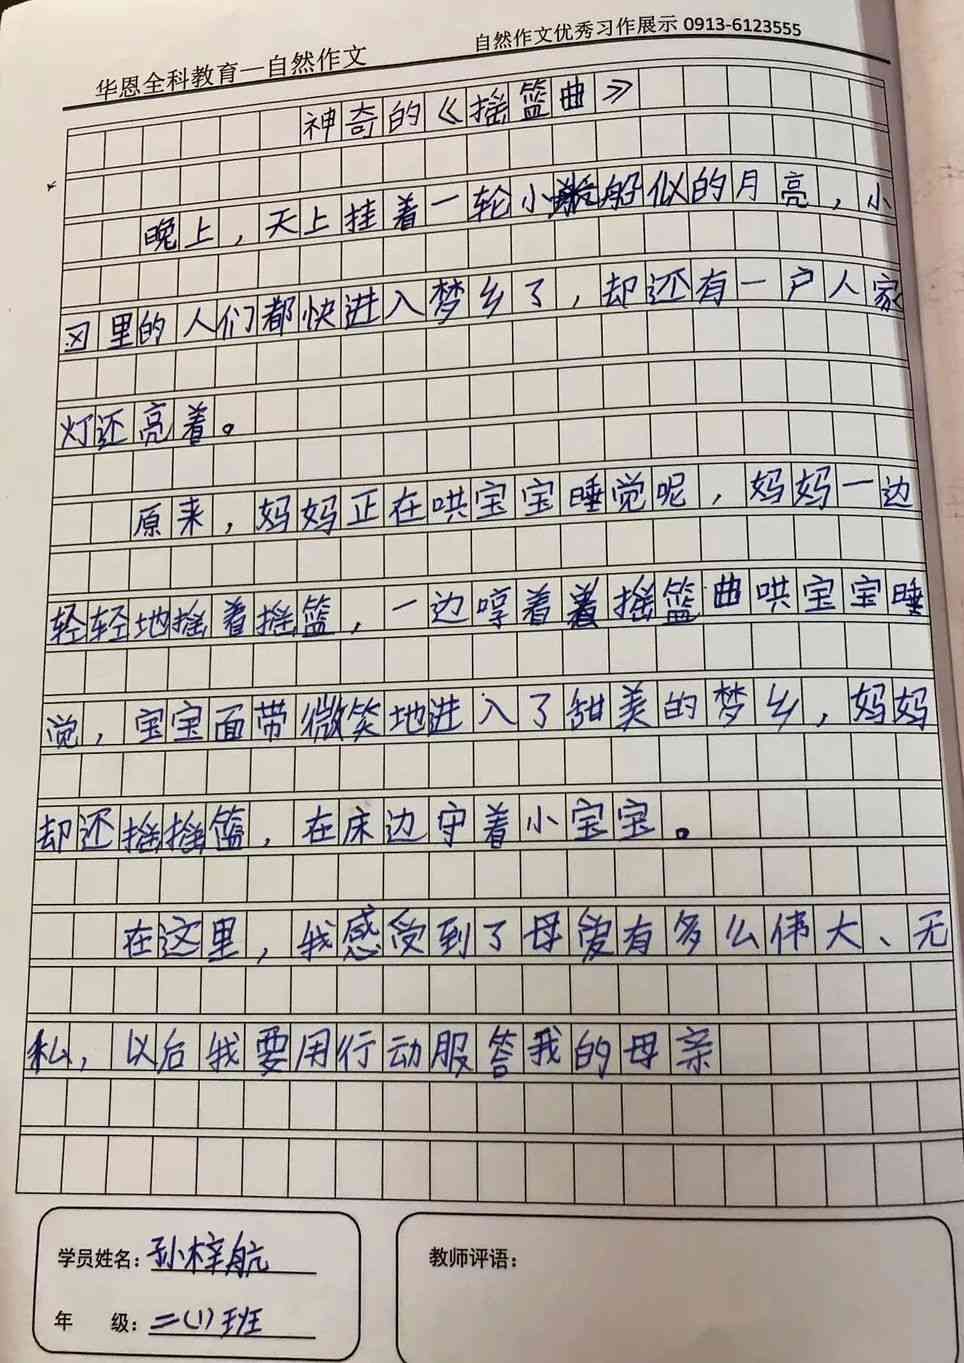 华恩全科教育—自然作文
自然作文优秀习作展示 0913-6123555
神奇的《摇篮曲》
晚上，天上挂着一轮小船似的月亮，小
区里的人们都快进入梦乡了，却还有一户人家
灯还亮着。
原来，妈妈正在哄宝宝睡觉呢，妈妈一边
轻轻地摇着摇篮，一边哼着着摇篮曲哄宝宝睡
觉，宝宝面带微笑地进入了甜美的梦乡，妈妈
却还摇摇篮，在床边守着小宝宝。
在这里，我感受到了母爱有多么伟大、无
私，以后我要用行动服答我的母亲
学员姓名：孙梓航
年 级：二(1)班
教师评语：